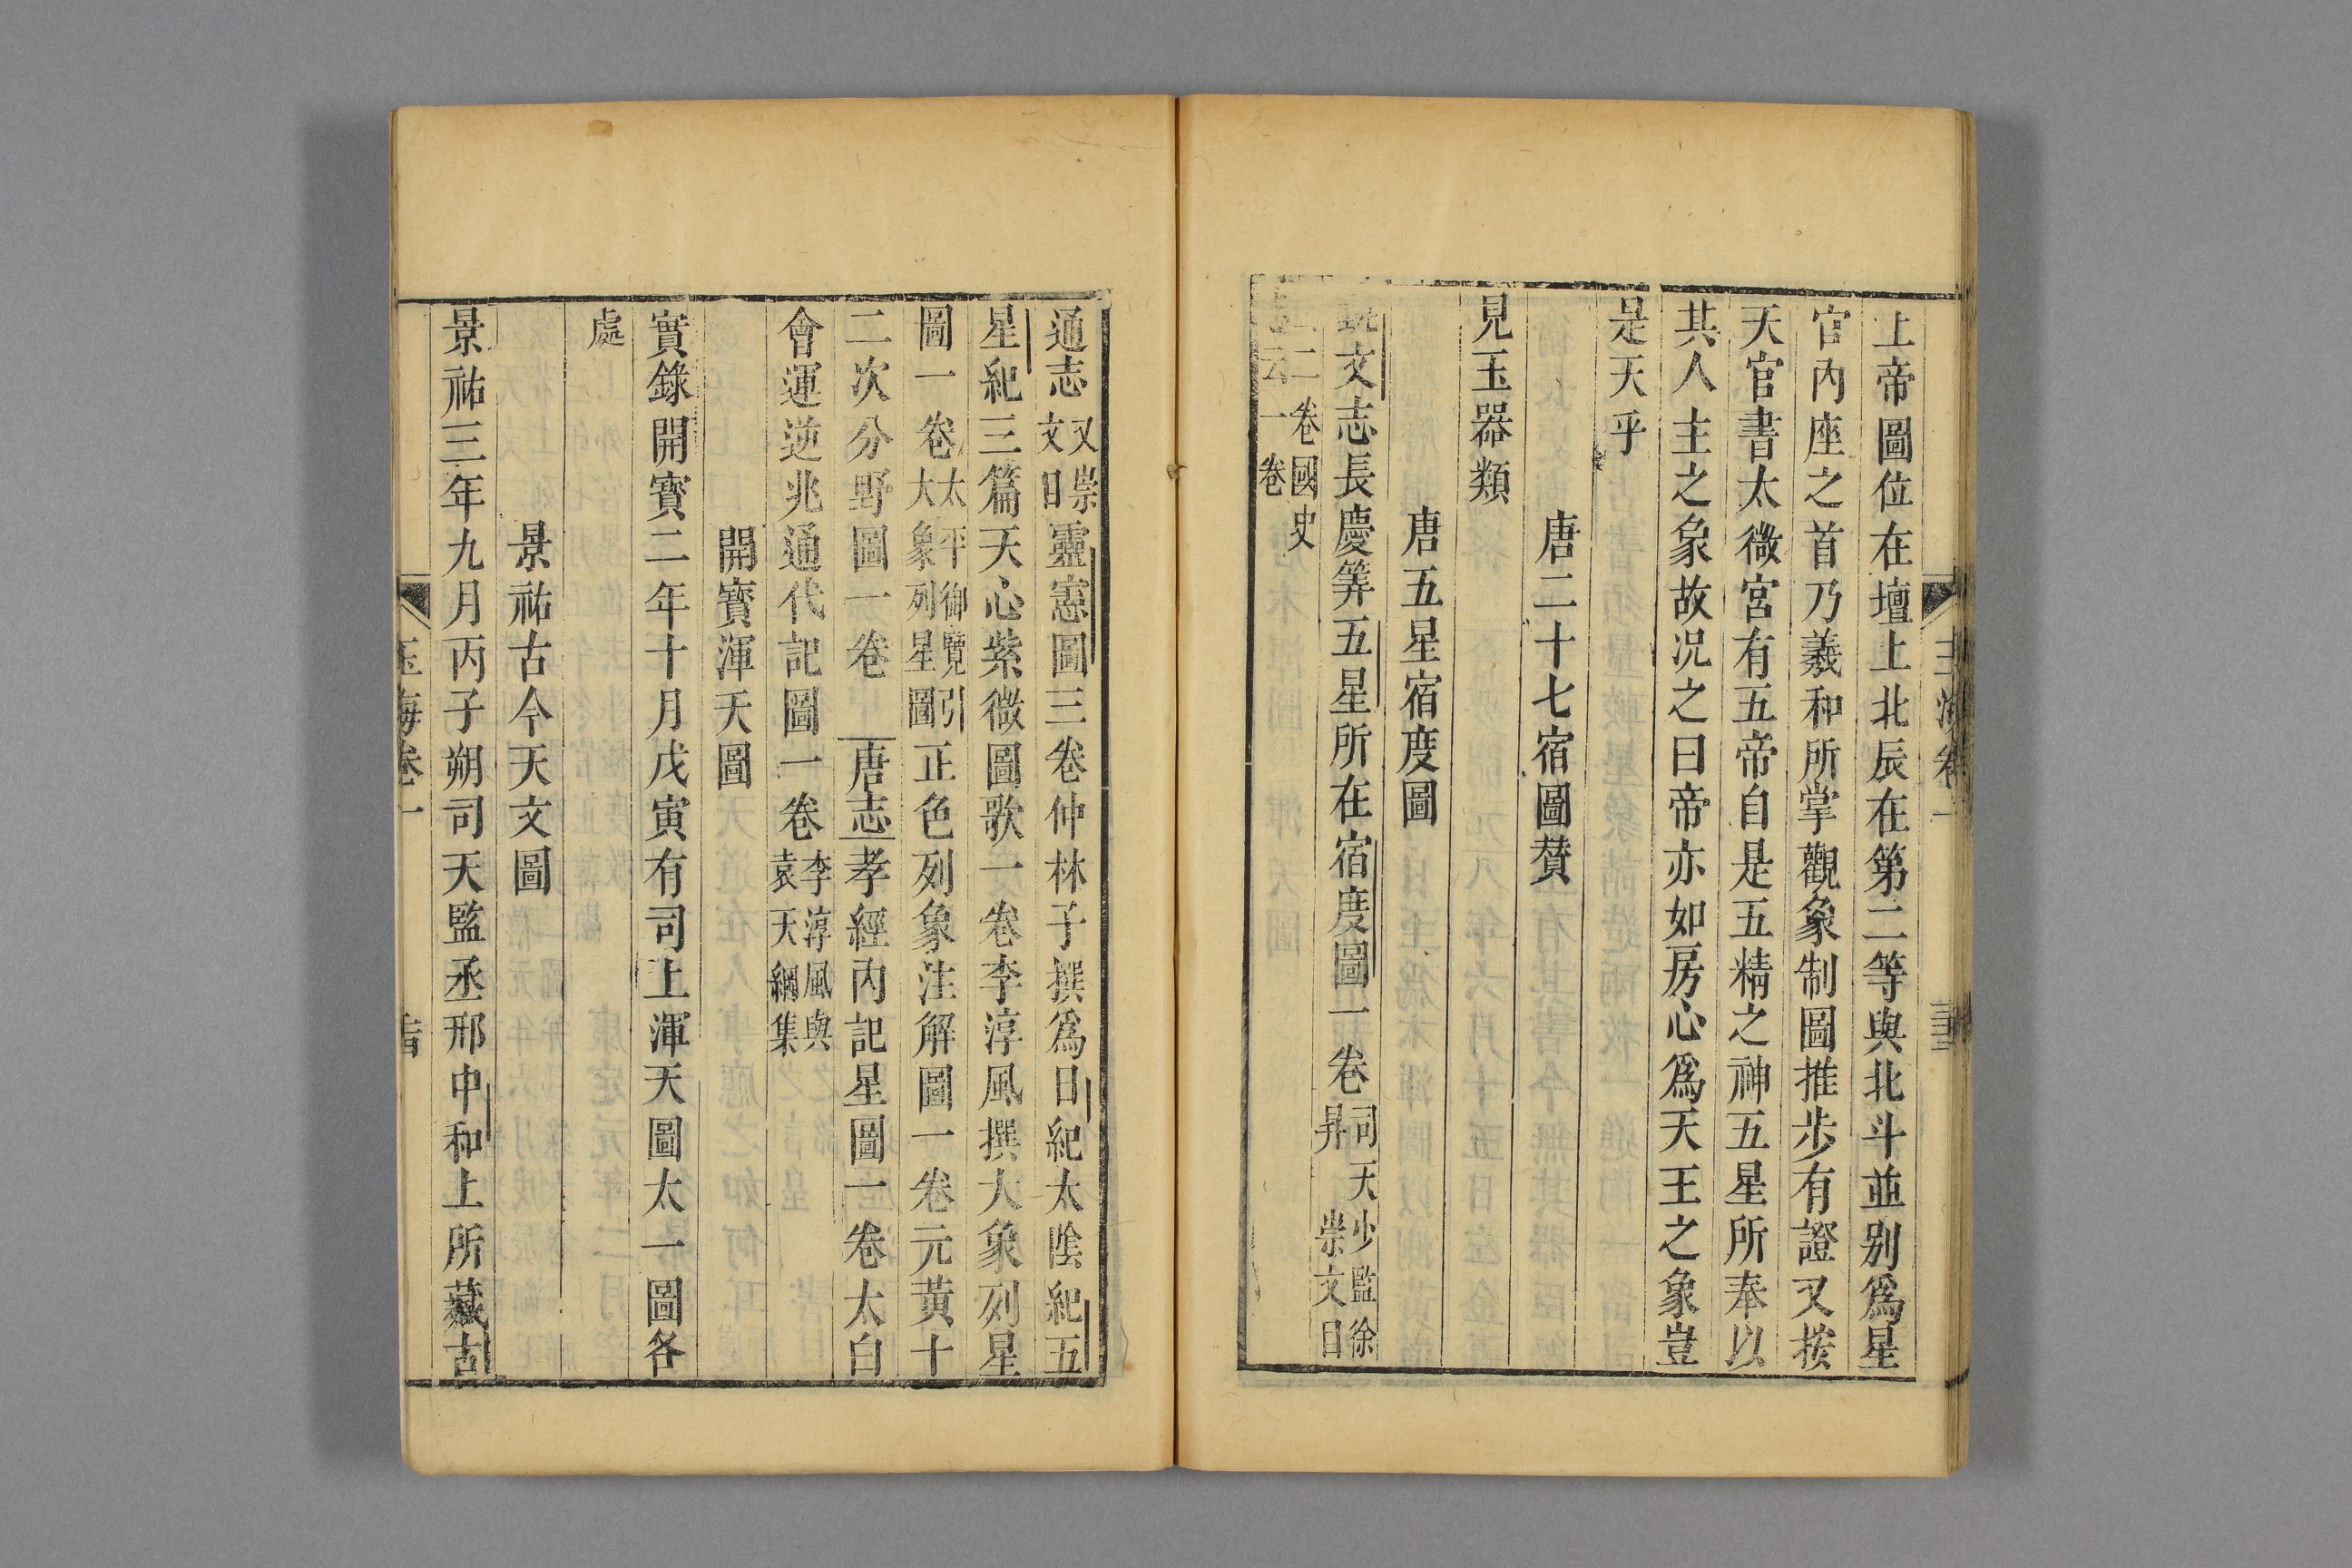 上帝圖位在壇上北辰在第二等與北斗並别爲星
官内座之首乃羲和所掌觀象制圖推步有證又按
天官書太微宮有五帝自是五精之神五星所奉以
其人主之象故况之曰帝亦如房心爲天王之象豈
是天乎
唐二十七宿圖贊
見玉器類
唐五星宿度圖
文志長慶筭五星所在宿度圖一卷司天少監徐昇 崇文目
二卷國史志云一卷
通志又崇文目靈憲圖三卷仲林子撰爲日紀太陰紀五
星紀三篇天心紫微圖歌一卷李淳風撰大象列星
圖一卷太平御覽引大象列星圖正色列象注解圖一卷元黃十
二次分野圖一卷 唐志孝經内記星圖一卷太白
會運逆兆通代記圖一卷李淳風與袁天綱集
開寶渾天圖
實錄開寶二年十月戊寅有司上渾天圖太一圖各
處
景祐古今天文圖
景祐三年九月丙子朔司天監丞邢中和上所藏古
玉海卷一